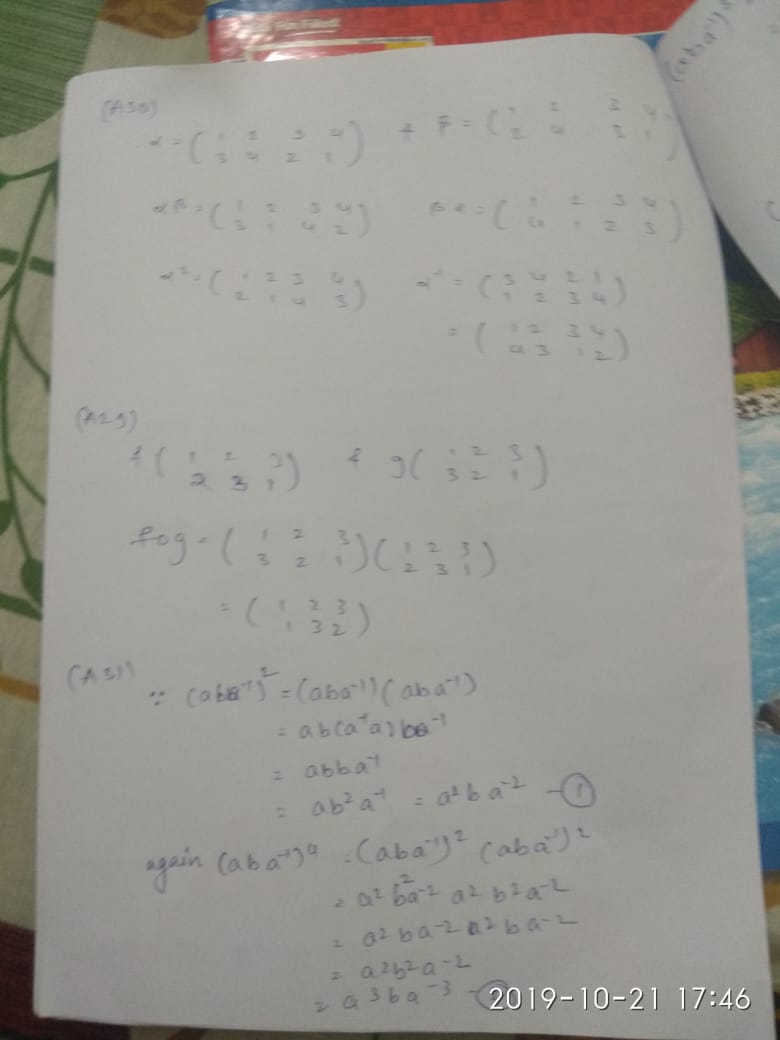 (A30)
α = ( 1 2 3 4 ) & β = ( 1 2 3 4 )
3 4 2 1 2 4 3 1
αβ = ( 1 2 3 4 ) βα = ( 1 2 3 4 )
3 1 4 2 4 1 2 3
α² = ( 1 2 3 4 ) α⁻¹ = ( 3 4 2 1 )
2 1 4 3 1 2 3 4
= ( 1 2 3 4 )
4 3 1 2
(A29)
f ( 1 2 3 ) & g ( 1 2 3 )
2 3 1 3 2 1
fog = ( 1 2 3 ) ( 1 2 3 )
3 2 1 2 3 1
= ( 1 2 3 )
1 3 2
(A31)
∵ (aba⁻¹)² = (aba⁻¹) (aba⁻¹)
= ab(a⁻¹a) ba⁻¹
= abba⁻¹
= ab²a⁻¹ = a²ba⁻² - ①
again (aba⁻¹)⁴ = (aba⁻¹)² (aba⁻¹)²
= a²b²a⁻² a²b²a⁻²
= a²ba⁻² a²ba⁻²
= a²b²a⁻²
= a³ba⁻³ -
2019-10-21 17:46